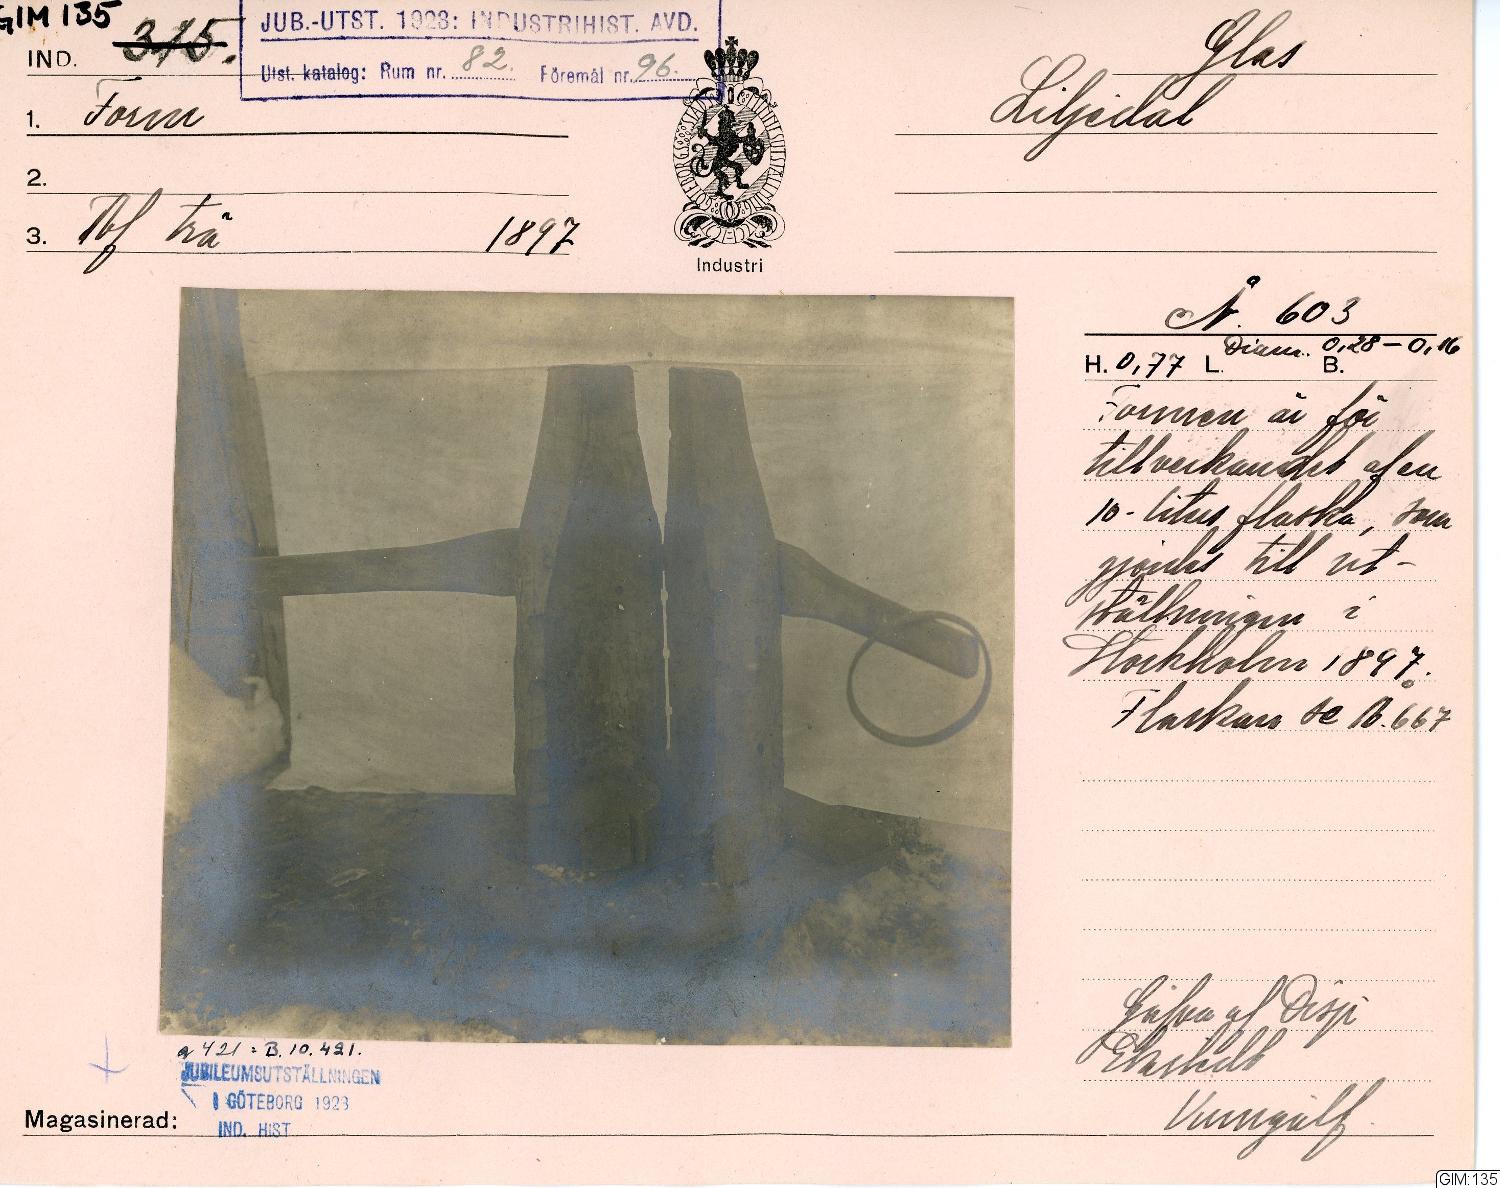 GIM 135
IND. 315.
JUB.-UTST. 1923: INDUSTRIHIST. AVD.
Utst. katalog: Rum nr. 82. Föremål nr. 96.
Glas
Liljedal
1. Form
2.
3. Af trä 1897
GÖTEBORGS STADS MINNESUTSTÄLLNING
Industri
Å. 603
Diam. 0,28-0,16
H. 0,77 L. B.
Formen är för
tillverkandet af en
10-liters flaska, som
gjordes till ut-
ställningen i
Stockholm 1897.
Flaskan se Å. 667
Gåfva af Disp
Ekstedt
a 421 : B. 10. 421.
JUBILEUMSUTSTÄLLNINGEN
I GÖTEBORG 1923
IND. HIST
Magasinerad:
GIM:135